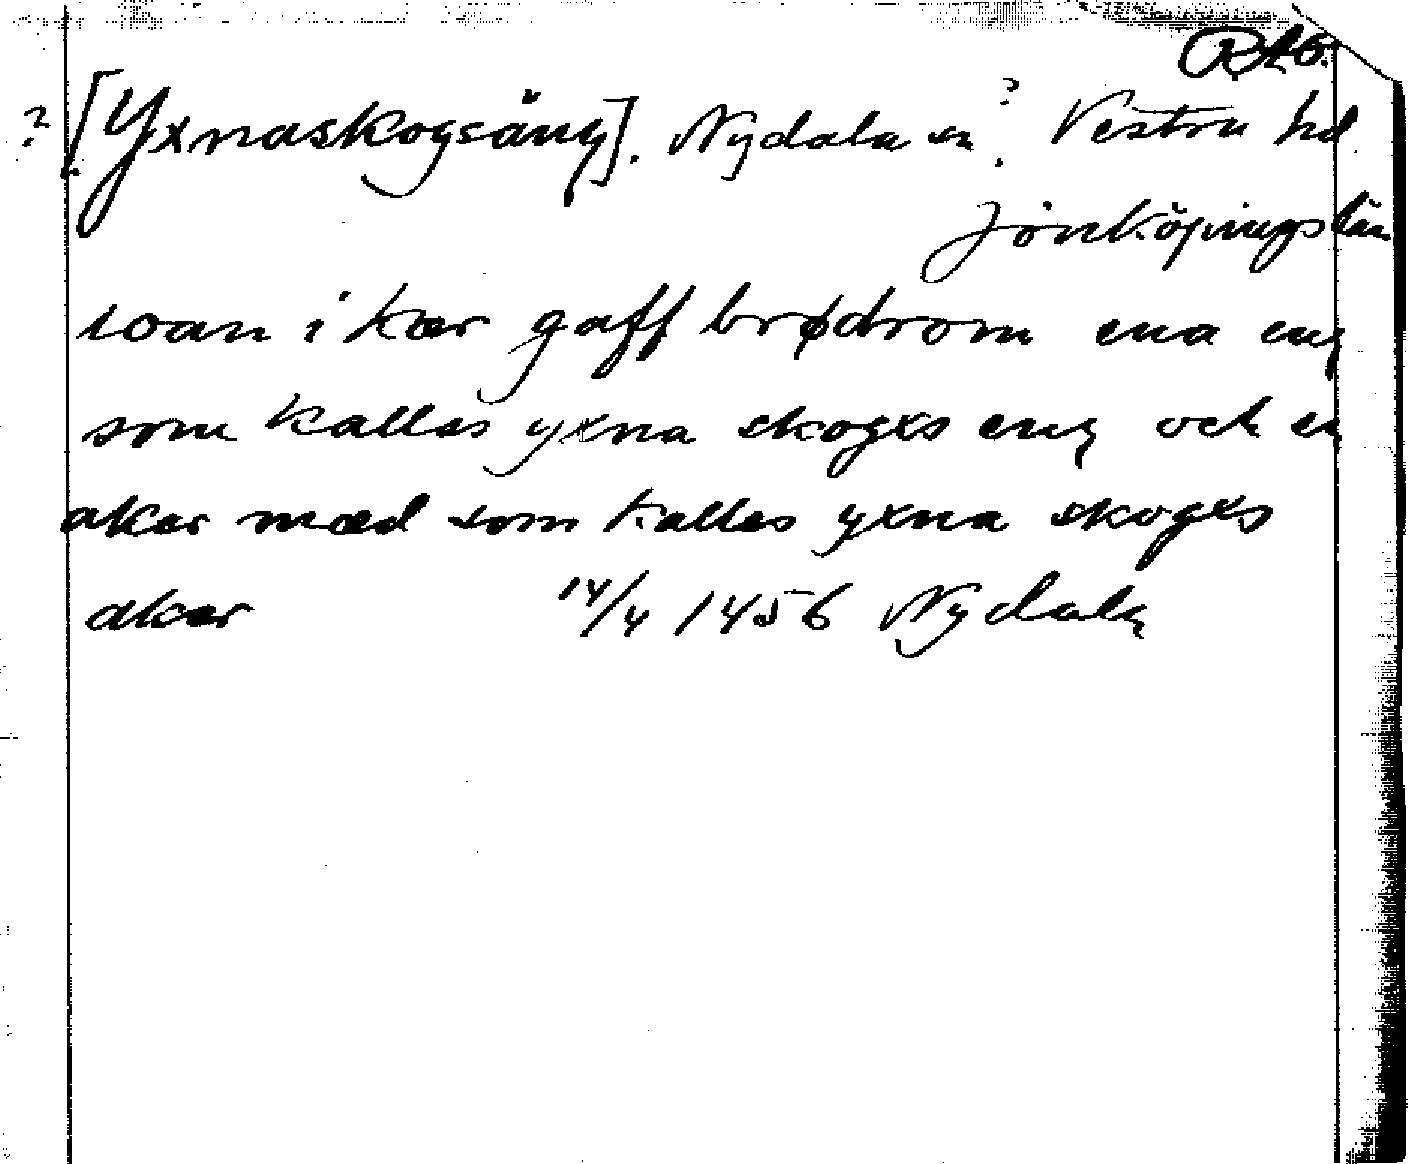 RAö.
? [Yxnaskogsäng]. Nydala sn ? Vestra hd.
Jönköpings län
ioan i kær gaff brødrom ena eng
som kallas yxna skogxs eng och en
aker mæd som kallas yxna skogxs
aker 14/4 1456 Nydala